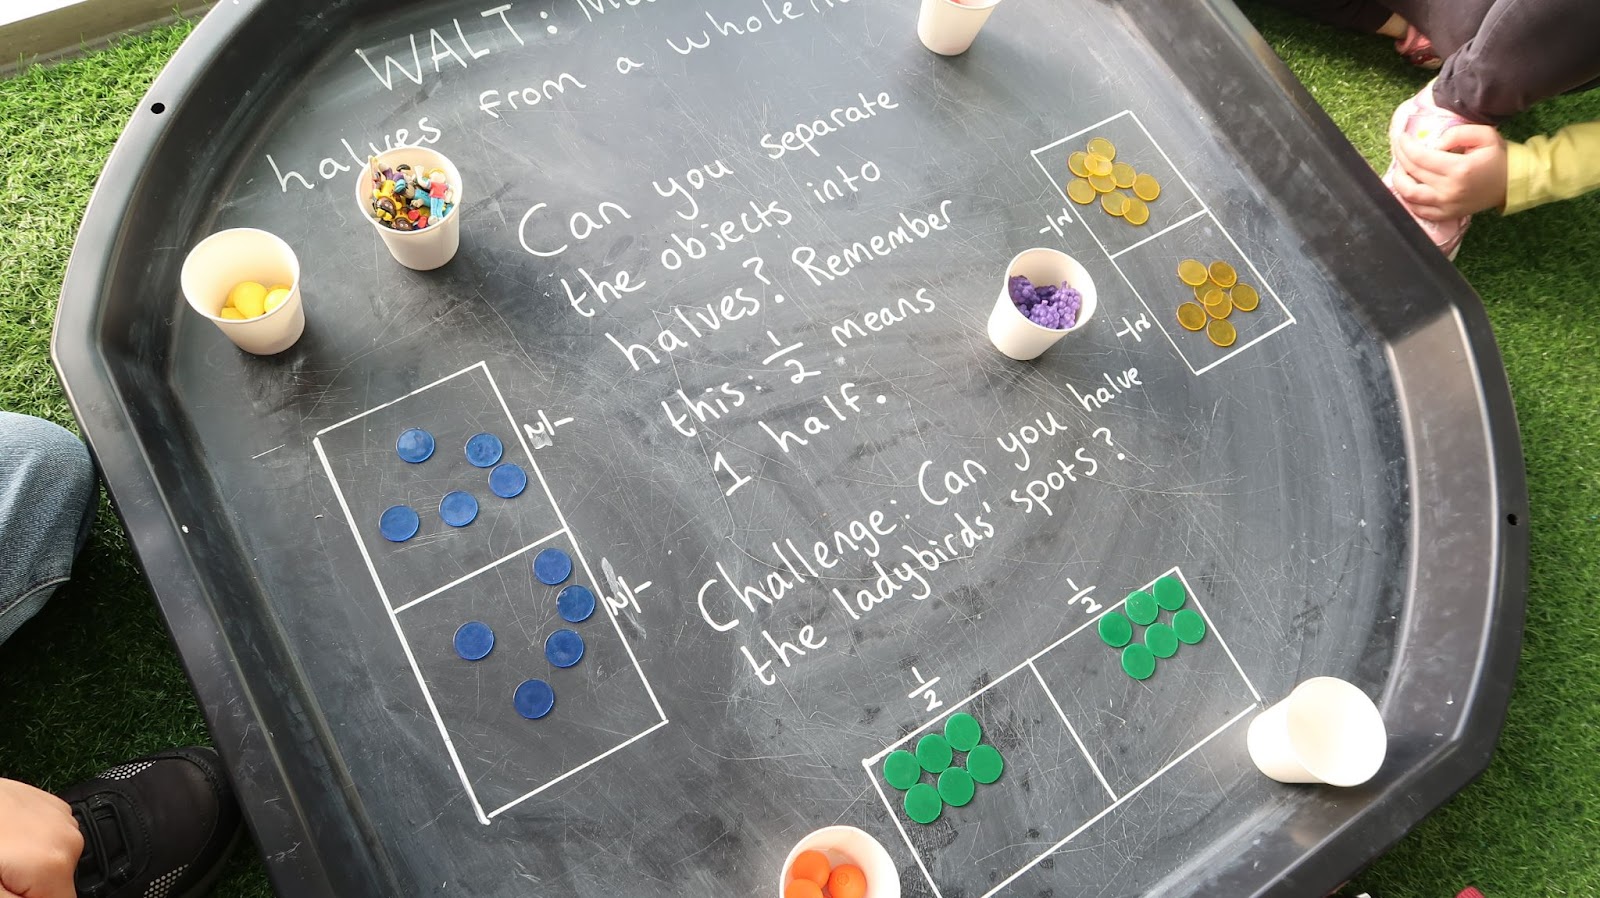 WALT:
halves from a whole
Can you separate
the objects into
halves? Remember
this: 1/2 means
1 half.
Challenge: Can you halve
the ladybirds' spots?
1/2
1/2
1/2
1/2
1/2
1/2